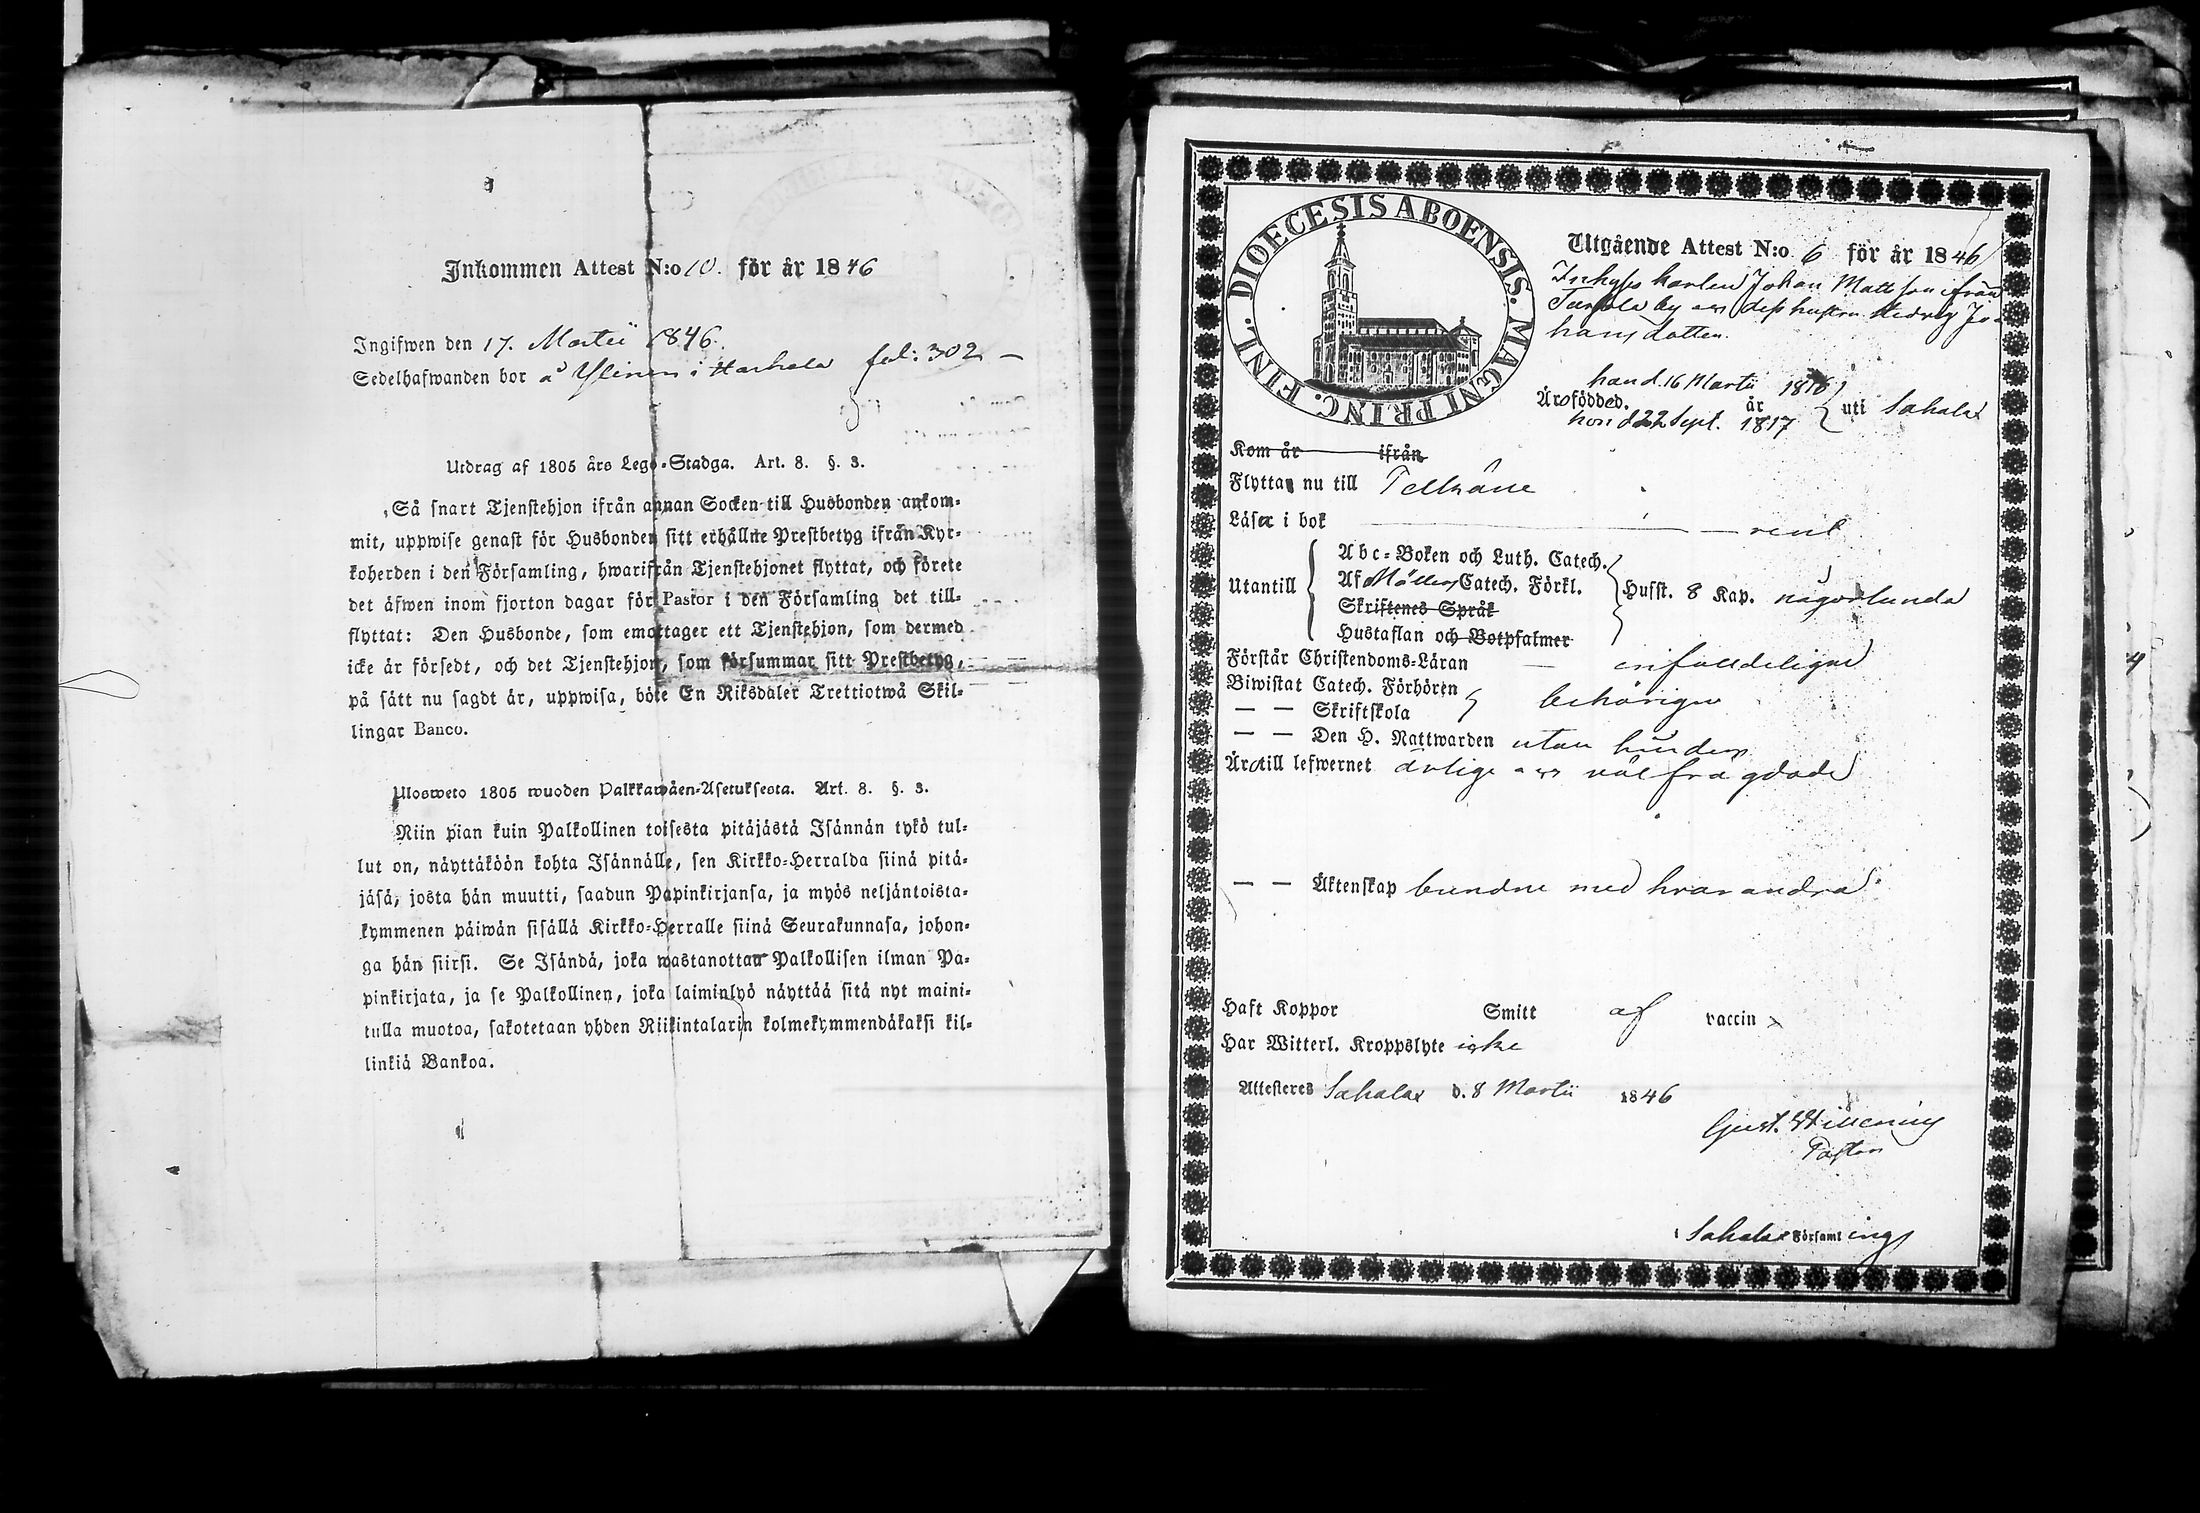 Inkommen Attest N:o 10. för år 1846
Ingifwen den 17. Martii 1846.
Sedelhafwanden bor å Ylinen i Harhala fol: 302 —
Utdrag af 1805 års Lego-Stadga. Art. 8. §. 3.
Så snart Tjenstehjon ifrån annan Socken till Husbonden ankom-
mit, uppwise genast för Husbonden sitt erhållne Prestbetyg ifrån Kyr-
koherden i den Församling, hwarifrån Tjenstehjonet flyttat, och förete
det äfwen inom fjorton dagar för Pastor i den Församling det till-
flyttat: Den Husbonde, som emottager ett Tjenstehjon, som dermed
icke är försedt, och det Tjenstehjon, som försummar sitt Prestbetyg,
på sätt nu sagdt är, uppwisa, böte En Riksdaler Trettiotwå Skil-
lingar Banco.
Ulosweto 1805 wuoden Palkkawäen-Asetuksesta. Art. 8. §. 3.
Niin pian kuin Palkollinen toisesta pitäjästä Isännän tykö tul-
lut on, näyttäköön kohta Isännälle, sen Kirkko-Herralda siinä pitä-
jäsä, josta hän muutti, saadun Papinkirjansa, ja myös neljäntoista-
kymmenen päiwän sisällä Kirkko-Herralle siinä Seurakunnasa, johon-
ga hän siirsi. Se Isändä, joka wastanottaa Palkollisen ilman Pa-
pinkirjata, ja se Palkollinen, joka laiminlyö näyttää sitä nyt maini-
tulla muotoa, sakotetaan yhden Riikintalarin kolmekymmendäkaksi kil-
linkiä Bankoa.
DIOECESIS ABOENSIS. MAGNI PRINC. FINL.
Utgående Attest N:o 6 för år 1846
Inhyses karlen Johan Mattsson från
by och dess hustru Hedvig Jo-
hansdotter.
han d. 16 Martii 1816
Äro födde d. år uti Sahalax
hon d 22 Sept. 1817
Kom år ifrån
Flytta nu till Pelkäne
Läser i bok — rent
Utantill
Abc-Boken och Luth. Catech.
Af Möllers Catech. Förkl.
Skriftenes Språk
Hustaflan och Botpsalmer
Husst. 8 Kap. någorlunda
Förstår Christendoms-Läran — enfaldeligen
Biwistat Catech. Förhören
— — Skriftskola behörigen
— — Den H. Nattwarden utan hinder
Äro till lefwernet ärlige och väl frägdade
— — Äktenskap bundne med hvarandra
Haft Koppor Smitt af vaccin
Har Witterl. Kroppslyte icke
Attesteres Sahalax d. 8 Martii 1846
Gust.
Pastor
i Sahalax Församlings